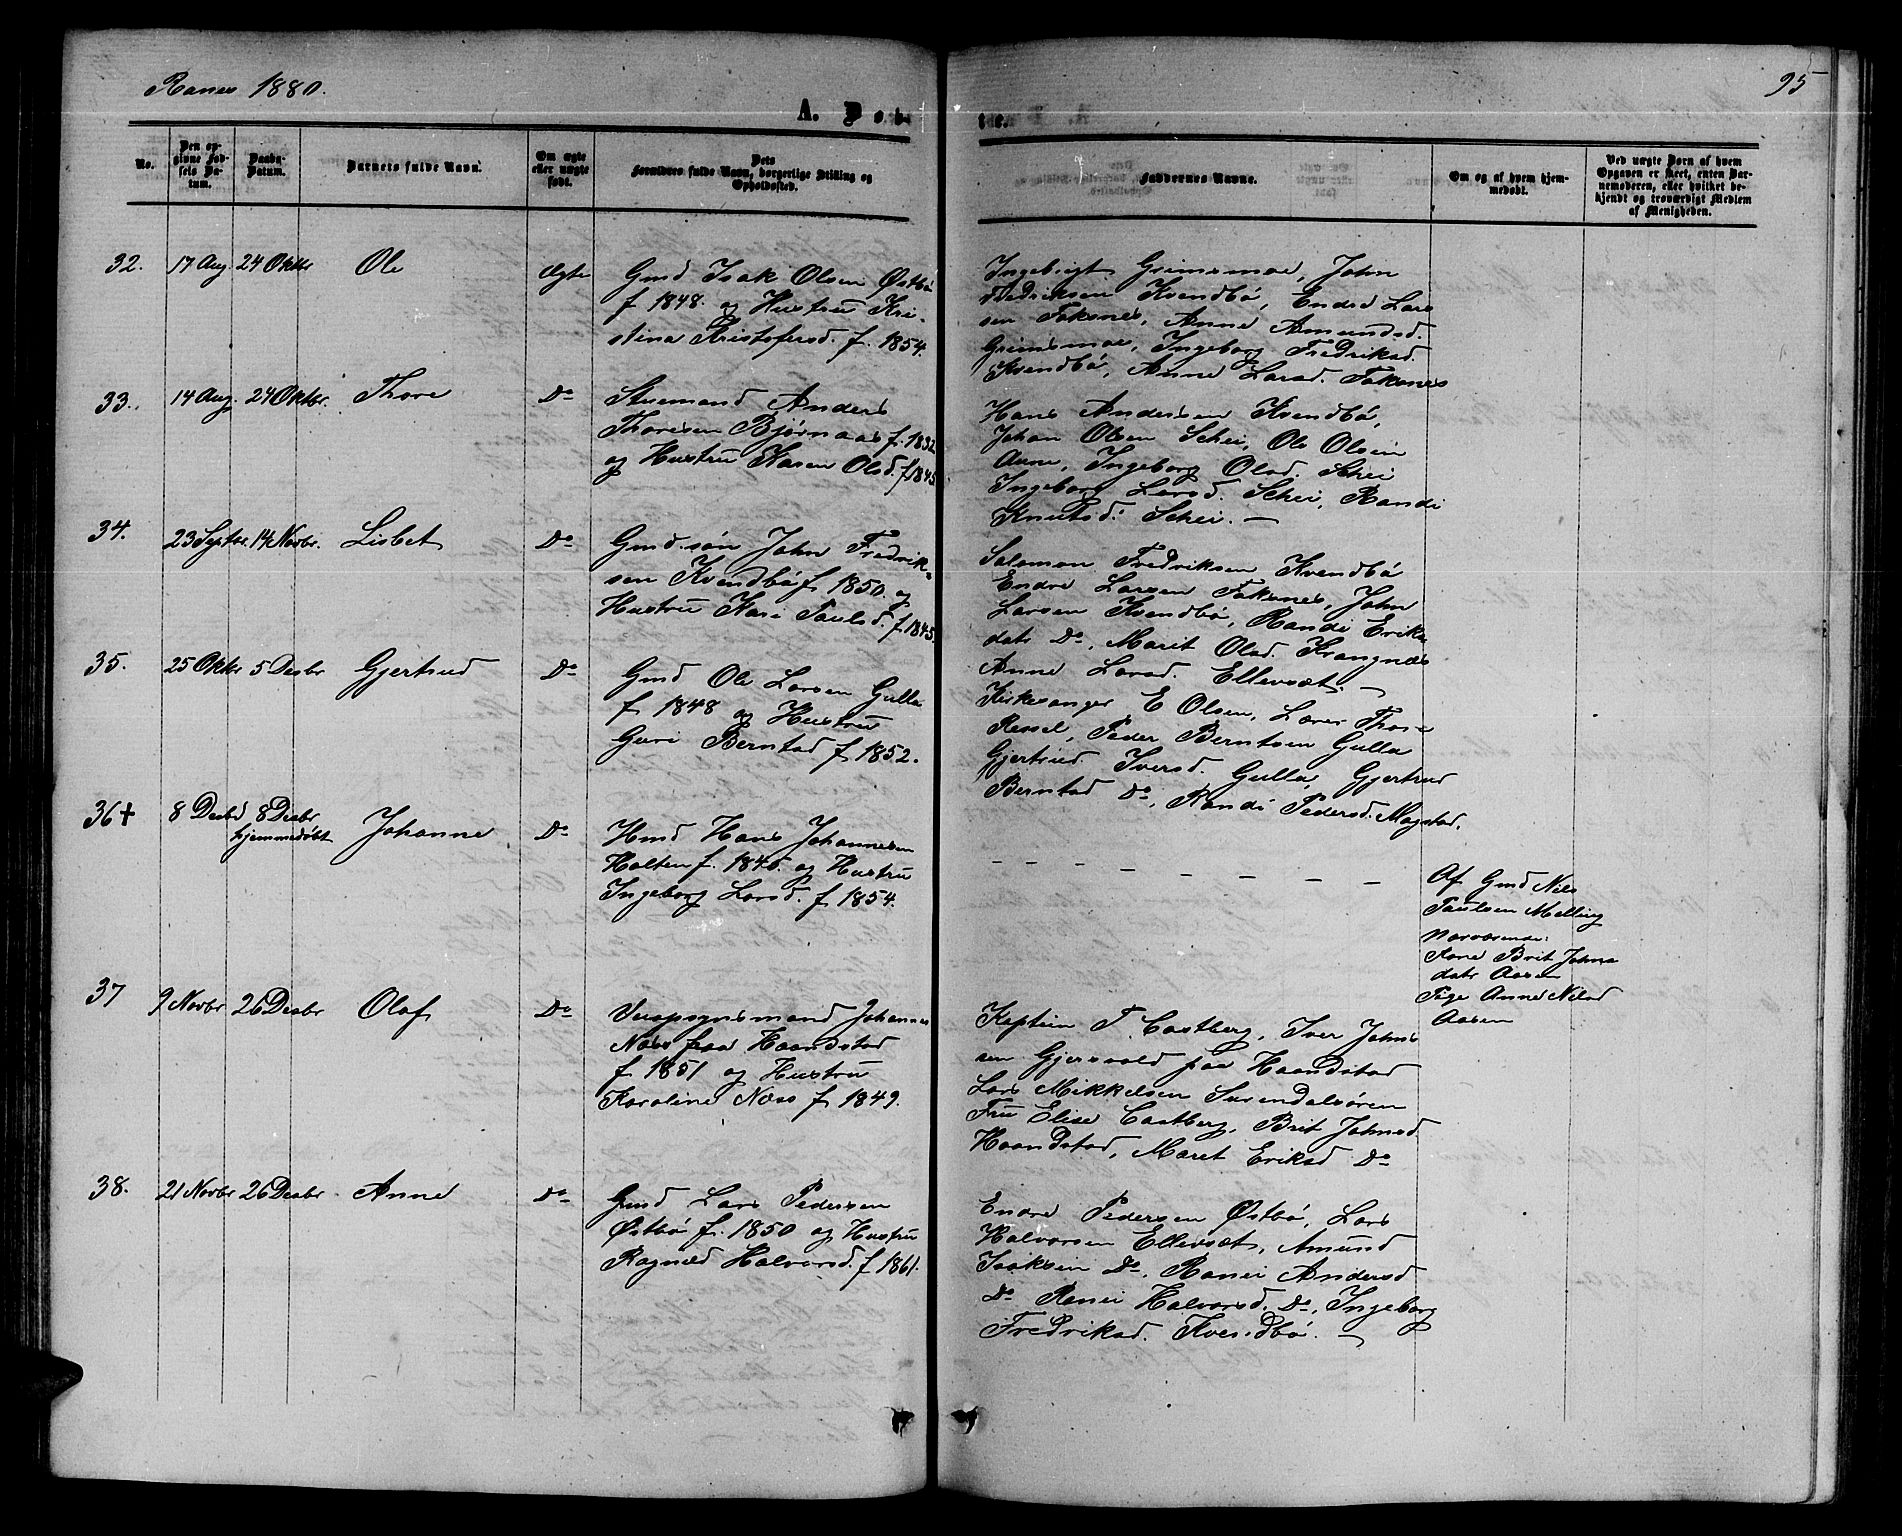 Ranes 1880.
95
A. Døb-
te.
No.
Den op-
givne Fød-
sels Da-
tum.
Daabs-
Datum.
Barnets fulde Navn.
Om ægte
eller uægte
født.
Dets
Forældres fulde Navn, borgerlige Stilling og
Opholdssted.
Faddernes Navne.
Om og af hvem hjem-
medøbt.
Ved uægte Børn af hvem
Opgaven er skeet, enten Bar-
nemoderen, eller hvilket be-
kjendt og troværdigt Medlem
af Menigheden.
32. 17 Aug. 24 Oktbr Ole ægte
Gmd Isak Olsen Østbø
f 1848. og Hustru Kri-
stina Kristofersd. f. 1854.
Ingebrigt Grimsmoe, John
Fredriksen Kvendbø, Endre Lars
sen Faksnes, Anne Amundsd.
Grimsmoe, Ingeborg Fredriksd.
Kvendbø, Anne Larsd. Faksnes
33. 14 Aug. 24 Oktbr. Thore Do
Stuemand Anders
Thoresen Bjørnaas f. 1832
og Hustru Karen Olsd. f 1845
Hans Andersen Kvendbø,
Johan Olsen Schei, Ole Olsen
Aune, Ingeborg Olsd. Schei
Ingeborg Larsd. Schei, Randi
Knutsd. Schei. —
34. 23 Septbr. 14 Novbr. Lisbet Do
Gmd.søn John Fredrik-
sen Kvendbø f 1850. og
Hustru Kari Paulsd. f. 1845.
Salomon Fredriksen Kvendbø
Endre Larsen Faksnes, John
Larsen Kvendbø, Randi Eriks
datr Do, Marit Olsd. Krangnæs
Anne Larsd. Ellevsæt. —
35. 25 Oktbr 5 Desbr Gjertrud Do
Gmd Ole Larsen Gulla
f 1848 og Hustru
Guri Berntsd f 1852.
Kirkesanger E Olsen, Lærer Thor-
Ressel, Peder Berntsen Gulla
Gjertrud Iversd. Gulla, Gjertrud
Berntsd Do, Randi Pedersd. Mogstad.
36 + 8 Desbr 8 Desbr
hjemmedøbt Johanne Do
Hmd Hans Johannesen
Holten f. 1845. og Hustru
Ingeborg Larsd. f 1854.
– – – – – – – – –
Af Gmd Nils
Paulsen Melling
Nærværende:
Kone Brit Johns
datr Aasen
Pige Anne Nilsd
Aasen
37 9 Novbr 26 Desbr Olaf Do
Veiopsynsmand Johannes
Næss fraa Haandstad
f 1851 og Hustru
Karoline Næss f 1849.
Kaptein T. Castberg, Iver Johns
sen Gjersvold paa Haandstad
Lars Mikkelsen Surendalsøren
Fru Elise Castberg, Brit Johnsd.
Haandstad, Maret Eriksd Do
38. 21 Novbr 26 Desbr. Anne Do
Gmd Lars Pedersen
Østbø f. 1850 og Hustru
Ragnild Halvorsd. f 1861.
Endre Pedersen Østbø, Lars
Halvorsen Ellevsæt, Amund
Isaksen Do, Ranei Andersd
Do Ranei Halvorsd. Do, Ingeborg
Fredriksd. Kvendbø. —